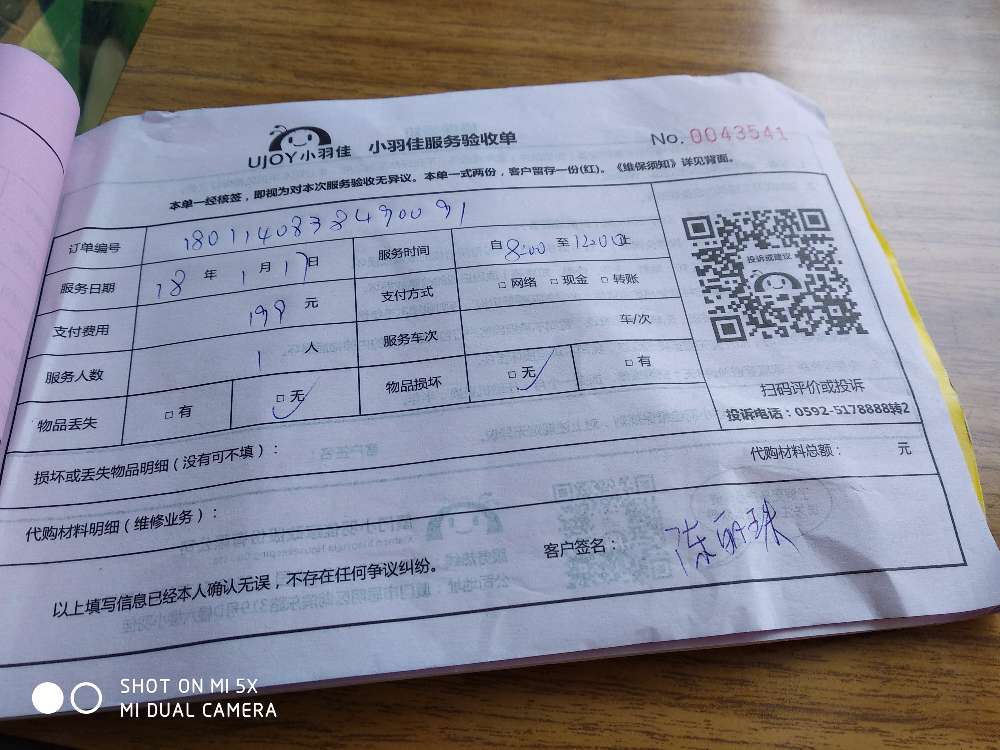 UJOY小羽佳 小羽佳服务验收单 No. 0043541
本单一经核签,即视为对本次服务验收无异议。本单一式两份,客户留存一份(红)。《维保须知》详见背面。
订单编号 1801140838490091
服务日期 18 年 1 月 17 日 服务时间 自 8:00 至 12:00 止
支付费用 199 元 支付方式 □ 网络 □ 现金 □ 转账
服务人数 1 人 服务车次 车/次
物品丢失 □ 有 □ 无 物品损坏 □ 无 □ 有
投诉或建议
扫码评价或投诉
投诉电话:0592-5178888转2
损坏或丢失物品明细(没有可不填):
代购材料总额: 元
代购材料明细(维修业务):
客户签名: 陈丽珠
以上填写信息已经本人确认无误,不存在任何争议纠纷。
SHOT ON MI 5X
MI DUAL CAMERA